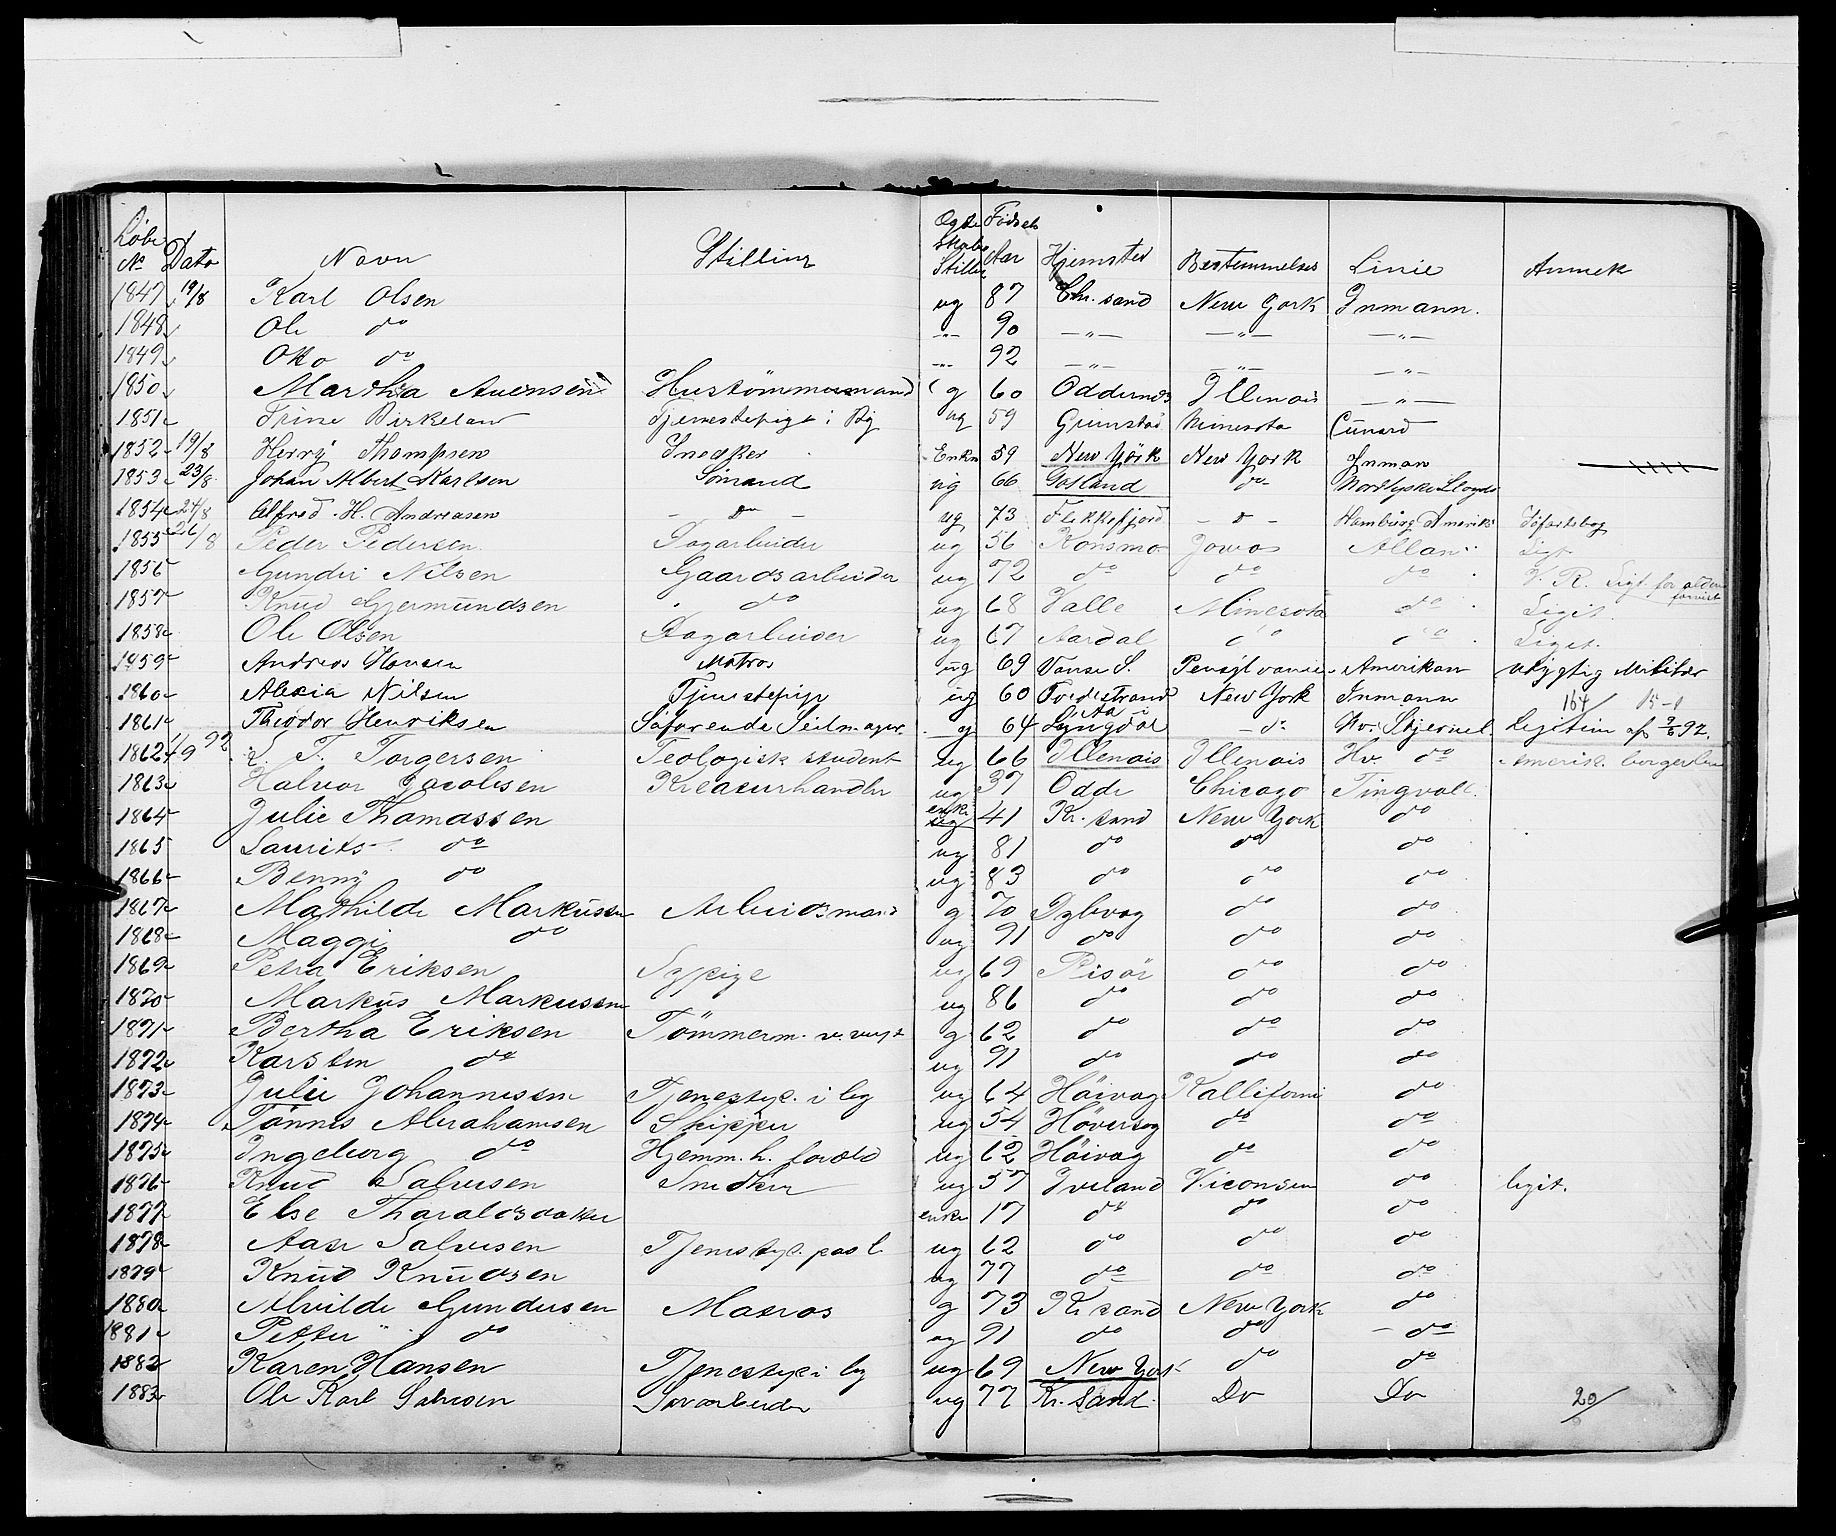 Løbe № Dato Navn Stilling Ogte skabs Stilli Fødsels Aar Hjemsted Bestemmelses Linie Anmek
1847 19/8 Karl Olsen ug 87 Chr. sand New York Inmann.
1848 Ole do -"- 90 -"- -"- -"-
1849 Otto do -"- 92 -"- -"- -"-
1850 Martha Auensen Hustömmermand g 60 Oddernes Illenois -"-
1851 Trine Birkeland Tjenestepige i By ug 59 Grimstad Minesota Cunard
1852 19/8 Herry Thompsen Snedker Enkm 59 New York New York Inman
1853 23/8 Johan Albert Karlsen Sömand ug 66 Gotland do Nordtyske Lloyds
1854 24/8 Alfred H. Andreasen - do - ug 73 Flekkefjord - do - Hamburg Amerik Söfartsbog
1855 26/8 Peder Pedersen Dagarbeider ug 56 Konsmo Jowa Allan Ligt
1856 Gunder Nilsen Gaardsarbeider ug 72 do do do V. R. Ligt for alderen forvist
1857 Knud Gjermundsen do ug 68 Valle Minesota do Ligit.
1858 Ole Olsen Dagarbeider ug 67 Aardal do do Ligit.
1859 Andreas Hansen Matros ug 69 Vanse S. Pensylvanie Amerikan Ulygtig Militær
1860 Alexia Nilsen Tjenestepige ug 60 Tvedestrand New York Inmann 164/ 15-8
1861 Theodor Henriksen Söfarende Seilmager g 64 Lyngdal do Hv. Stjernel. Legitim af 9/6 92.
1862 1/9 92 L. T. Torgersen Teologisk student ug 66 Illenois Illenois Hv. do Amerik. borgerbrev
1863 Halvor Jacobsen Kreaturhandler ug 37 Odde Chicago Tingvall.
1864 Julie Thomassen enke ug 41 Kr. sand New York do
1865 Laurits do ug 81 do do do
1866 Benny do ug 83 do do do
1867 Mathilde Markussen Arbeidsmand g 70 Dybvag do do
1868 Maggi do ug 91 do do do
1869 Petra Eriksen Sypige ug 69 Risör do do
1870 Markus Markussen ug 86 do do do
1871 Bertha Eriksen Tömmerm. v. verft g 62 do do do
1872 Karsten do ug 91 do do do
1873 Julie Johannesen Tjenestep. i by ug 64 Höivag Kalliforni do
1874 Tönnes Abrahamsen Skipper ug 54 Hövåg do do
1875 Ingeborg do Hjemm. h. foreld ug 62 Höivag do do
1876 Knud Salvesen Snedker ug 57 Iveland Viconsin do legit.
1877 Else Tharaldsdatter enke 17 do do do
1878 Aase Salvesen Tjenestep. paa l. ug 62 do do do
1879 Knud Knudsen ug 77 do do do
1880 Alvilde Gundersen Matros g 73 Kr sand New York do
1881 Petter do ug 91 do do - do
1882 Karen Hansen Tjenestep i by ug 69 New York do do
1883 Ole Karl Salvesen Savarbeider ug 77 Kr. sand. Do Do
20/